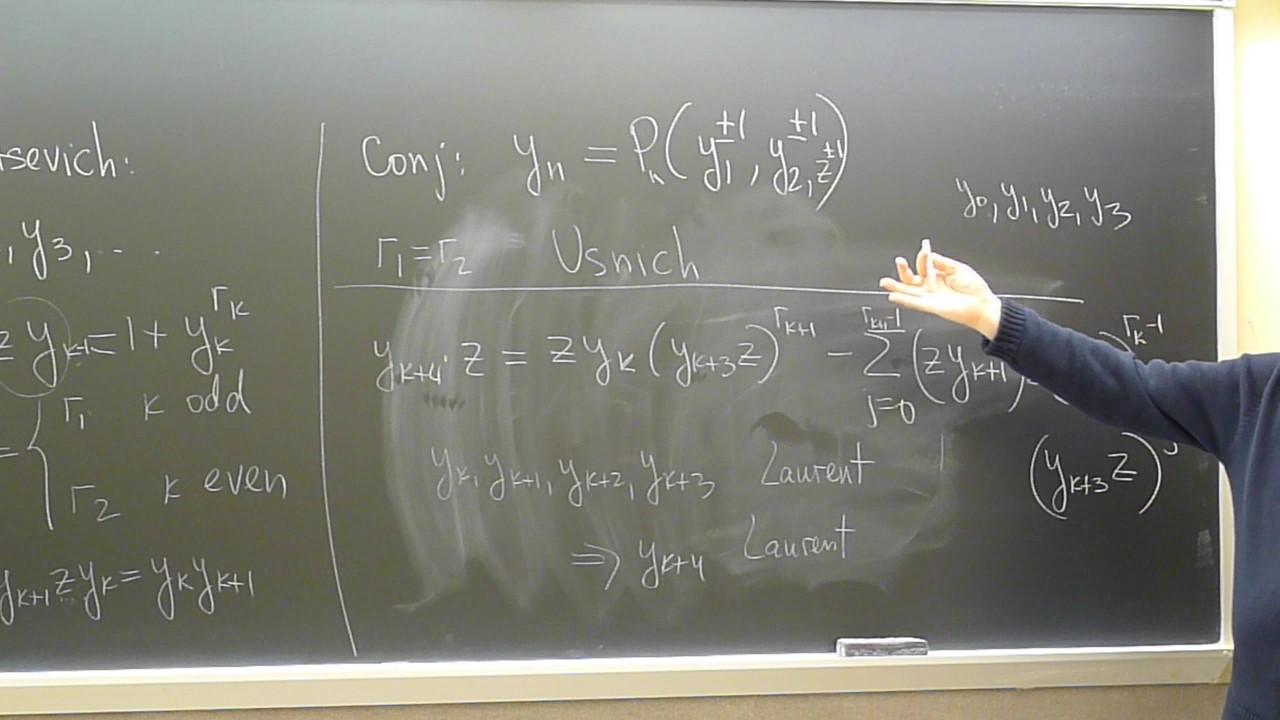 sevich:
, y_3, ...
z y_{k+1} = 1 + y_k^{r_k}
= { r_1 k odd
r_2 k even
y_{k+1} z y_k = y_k y_{k+1}
Conj: y_n = P_n(y_1^{±1}, y_2^{±1}, z^{±1})
r_1 = r_2 Usnich
y_0, y_1, y_2, y_3
y_{k+4} · z = z y_k (y_{k+3} z)^{r_{k+1}} - \sum_{j=0}^{r_{k+1}-1} (z y_{k+1}) )^{r_k-1}
(y_{k+3} z)^j
y_k, y_{k+1}, y_{k+2}, y_{k+3} Laurent
⇒ y_{k+4} Laurent